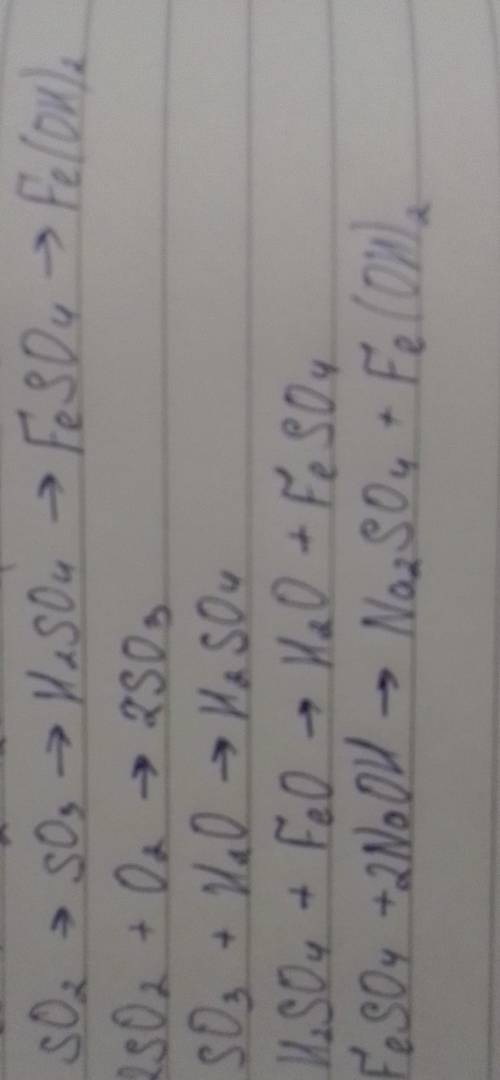 SO₂ → SO₃ → H₂SO₄ → FeSO₄ → Fe(OH)₂
2SO₂ + O₂ → 2SO₃
SO₃ + H₂O → H₂SO₄
H₂SO₄ + FeO → H₂O + FeSO₄
FeSO₄ + 2NaOH → Na₂SO₄ + Fe(OH)₂